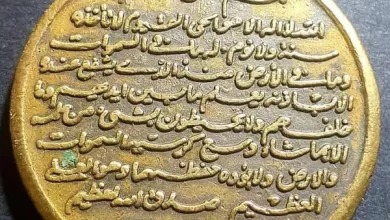 الله لا اله الا هو الحي القيوم لا تاخذه
سنة ولا نوم له ما في السموات
وما في الارض من ذا الذي يشفع عنده
الا باذنه يعلم ما بين ايديهم وما
خلفهم ولا يحيطون بشئ من علمه
الا بما شاء وسع كرسيه السموات
والارض ولا يؤده حفظهما وهو العلي
العظيم صدق الله العظيم